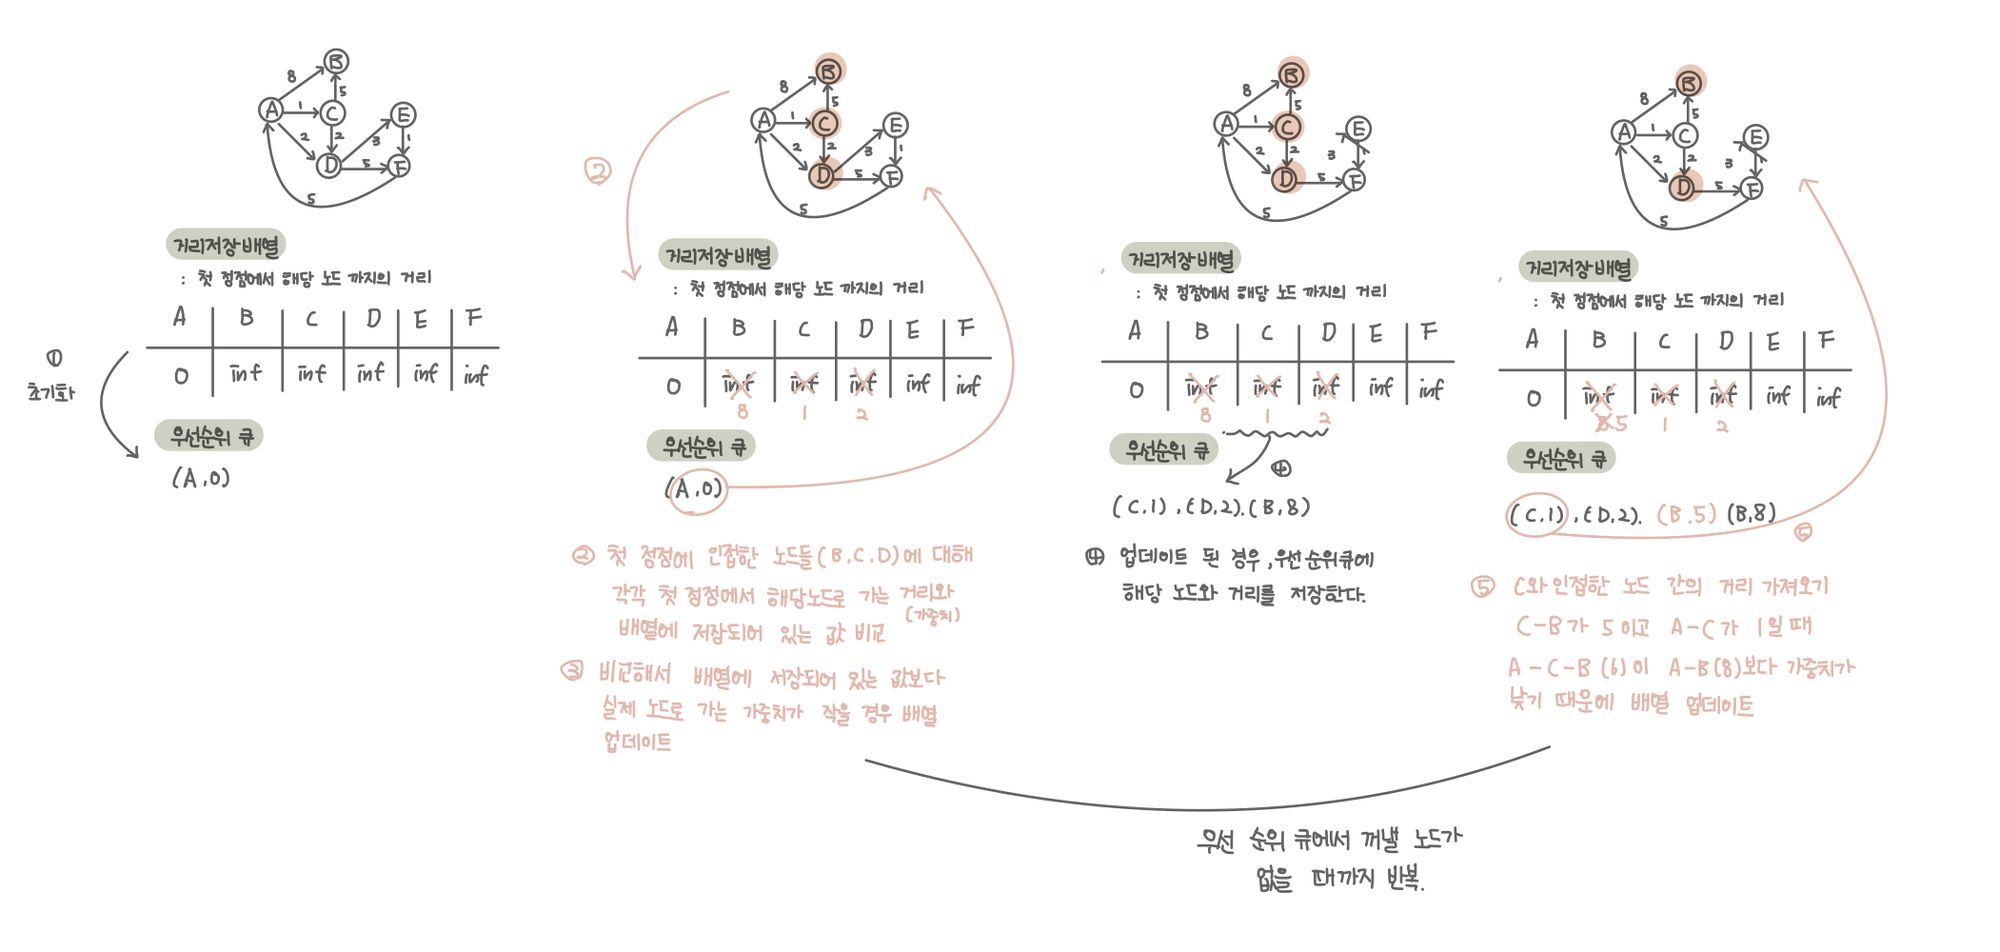 B
8
5
A
1
C
E
2
2
3
1
D
5
F
5
거리저장배열
: 첫 정점에서 해당 노드 까지의 거리
A B C D E F
0 inf inf inf inf inf
①
초기화
우선순위 큐
(A,0)
②
B
8
5
A
1
C
E
2
2
3
1
D
5
F
5
거리저장배열
: 첫 정점에서 해당 노드 까지의 거리
A B C D E F
0 inf inf inf inf inf
8 1 2
우선순위 큐
(A,0)
② 첫 정점에 인접한 노드들(B,C,D)에 대해
각각 첫 정점에서 해당노드로 가는 거리와
(가중치)
배열에 저장되어 있는 값 비교
③ 비교해서 배열에 저장되어 있는 값보다
실제 노드로 가는 가중치가 작을 경우 배열
업데이트
B
8
5
A
1
C
E
2
2
3
D
5
F
5
거리저장배열
: 첫 정점에서 해당 노드 까지의 거리
A B C D E F
0 inf inf inf inf inf
8 1 2
우선순위 큐
④
(C,1),(D,2).(B,8)
④ 업데이트 된 경우, 우선순위큐에
해당 노드와 거리를 저장한다.
B
8
5
A
1
C
E
2
2
3
D
5
F
5
거리저장배열
: 첫 정점에서 해당 노드 까지의 거리
A B C D E F
0 inf inf inf inf inf
8 5 1 2
우선순위 큐
(C,1),(D,2). (B.5) (B,8)
⑤
⑤ C와 인접한 노드 간의 거리 가져오기
C-B가 5이고 A-C가 1일 때
A-C-B(6)이 A-B(8)보다 가중치가
낮기 때문에 배열 업데이트
우선 순위 큐에서 꺼낼 노드가
없을 때까지 반복.